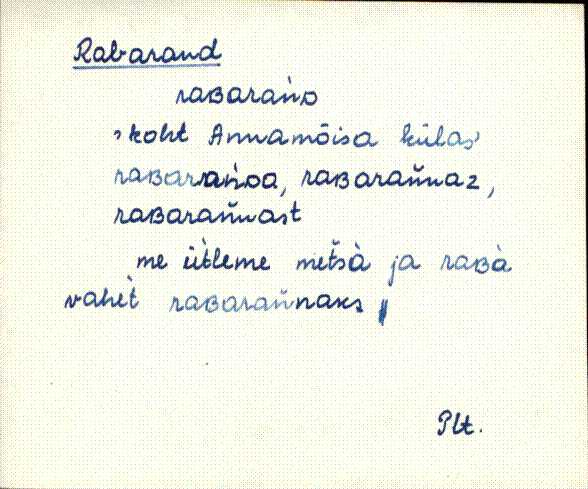 Rabarand
raʙaraǹᴅ
›koht Annamõisa külas›
raʙaraǹᴅa, raʙarañnaz,
raʙarañnast
me üt̀leme met̆sà ja raʙà
vahèt raʙarañnaks
Plt.